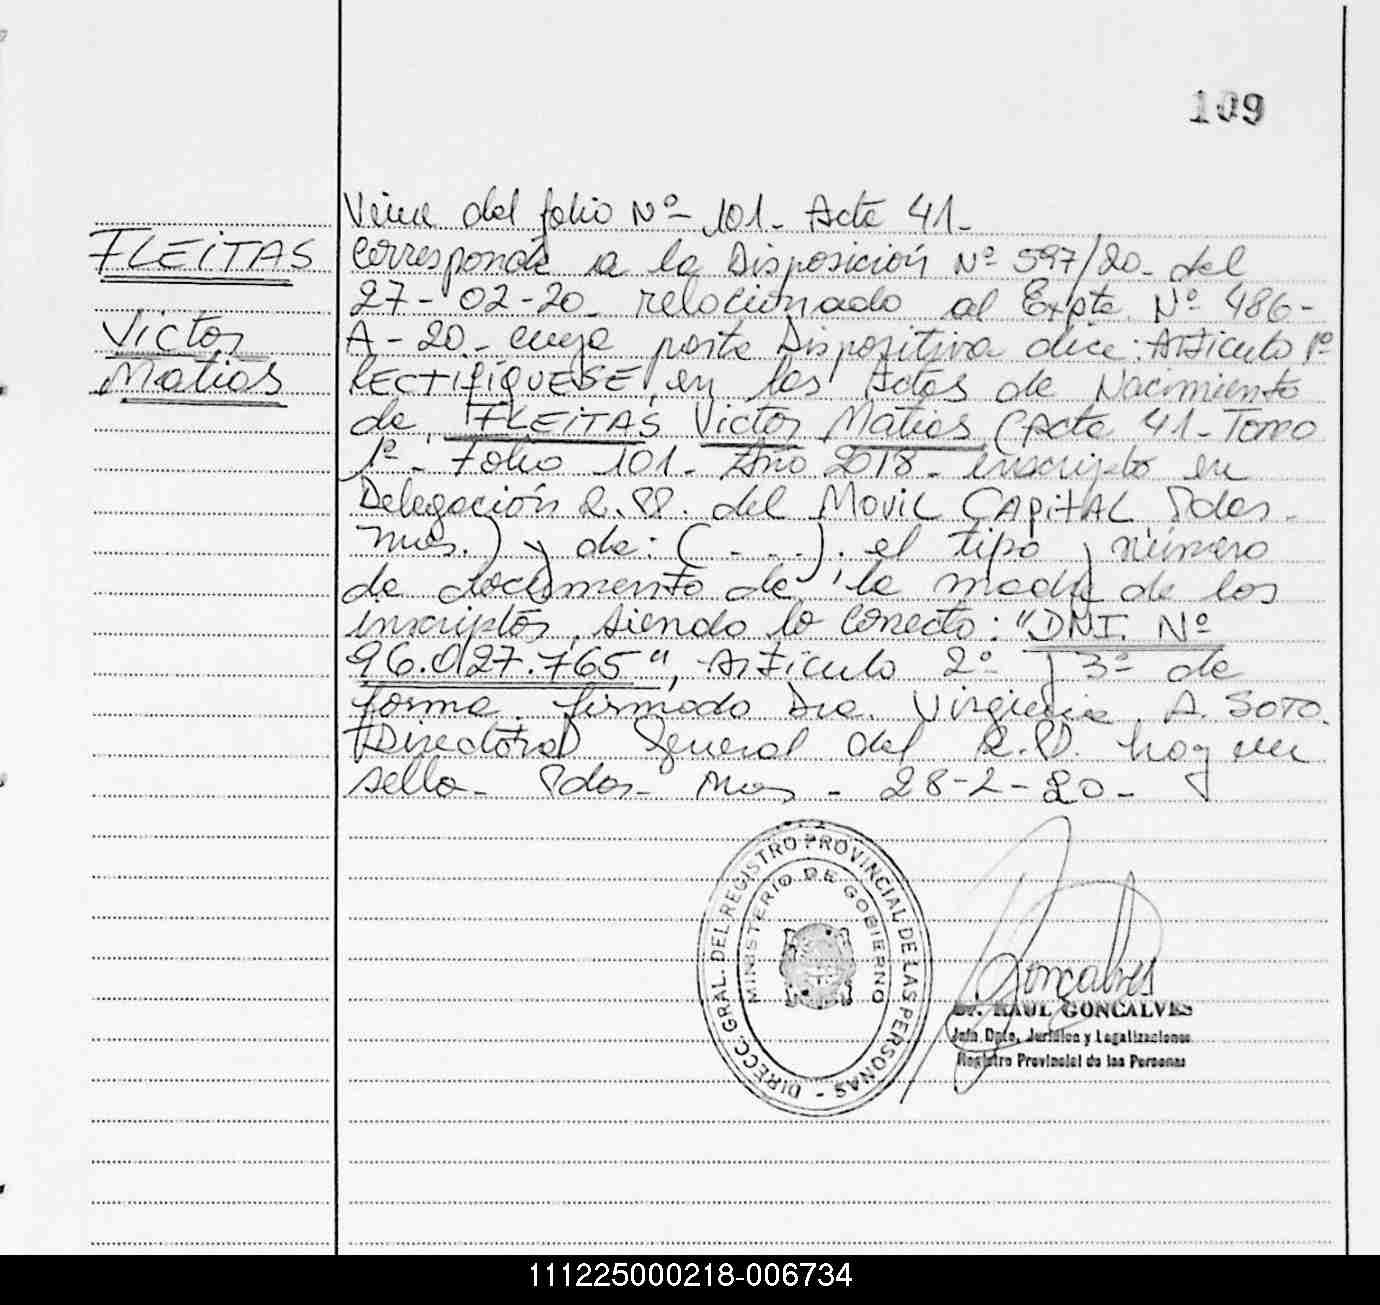 109
Viene del folio Nº 101 - Acta 41 -
FLEITAS
Victor
Matias
Corresponde a la Disposición Nº 597/20 - del
27-02-20 - relacionado al Expte. Nº 486-
A-20 - cuya parte Dispositiva dice: Artículo 1º
RECTIFIQUESE, en las Actas de Nacimiento
de FLEITAS Victor Matias (Acta 41 - Tomo
1º - Folio 101 - Año 2018 - inscripto en
Delegación R.P. del MOVIL CAPITAL Pdas.
Mnes.) y de: (- - -), el tipo y número
de documento de la madre de los
inscriptos, siendo lo correcto: "DNI. Nº
96.027.765", Artículo 2º y 3º de
forma. firmado Dra. Virginia A. SOTO.
Directora General del R.P. hay un
sello - Pdas - Mnes - 28-2-20 -
DIRECC. GRAL. DEL REGISTRO PROVINCIAL DE LAS PERSONAS -
MINISTERIO DE GOBIERNO
Goncalves
Dr. RAUL GONCALVES
Jefe Dpto. Jurídico y Legalizaciones
Registro Provincial de las Personas
111225000218-006734